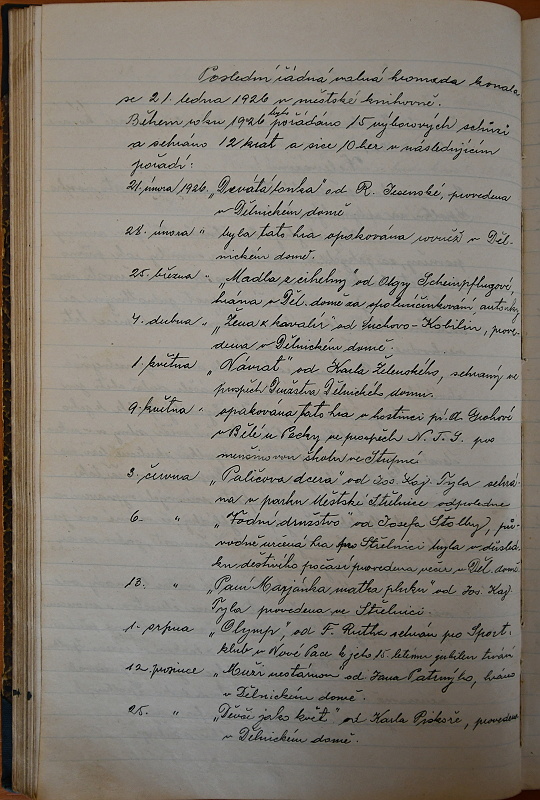 Poslední řádná valná hromada konala
se 21. ledna 1926 v městské knihovně.
Během roku 1926 bylo pořádáno 15 výborových schůzí
a sehráno 12 krát a sice 10 her v následujícím
pořadí:
21. února 1926 „Devátá louka" od R. Jesenské, provedena
v Dělnickém domě
28. února " byla tato hra opakována rovněž v Děl-
nickém domě.
25. března " „Madla z cihelny" od Olgy Scheinpflugové,
hrána v Děl. domě za spoluúčinkování autorky
4. dubna " „Žena z kavalír" od Suchovo-Kobilin, prove-
dena v Dělnickém domě.
1. května „Návrat" od Karla Želenského, sehraný ve
prospěch Družstva Dělnického domu.
9. května " opakována tato hra v hostinci pí. A. Grohové
v Bělé u Pecky ve prospěch N. J. S. pro
menšinovou školu ve Stupné
3. června „Paličova dcera" od Jos. Kaj. Tyla sehrá-
na v parku Městské Střelnice odpoledne
6. " „Vodní družstvo" od Josefa Štolby, půz-
vodně určená hra pro Střelnici byla v důsled-
ku deštivého počasí provedena večer v Děl. domě
13. " „Paní Marjánka matka pluku" od Jos. Kaj.
Tyla provedena ve Střelnici.
1. srpna „Olymp", od F. Rutha sehrán pro Sport.
klub v Nové Pace k jeho 15. letému jubileu trvání
12. prosince „Muži nestárnou od Jana Patrného, hráno
v Dělnickém domě.
25. " „Děvče jako květ" od Karla Piskoře, provedeno
v Dělnickém domě.